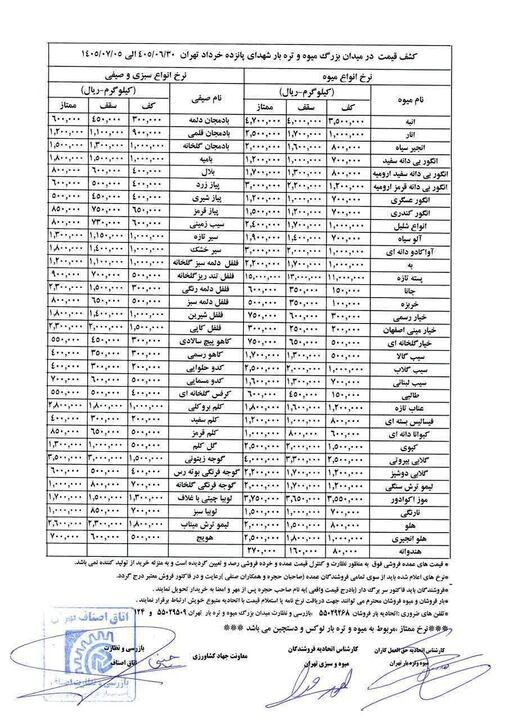 کشف قیمت در میدان بزرگ میوه و تره بار شهدای پانزده خرداد تهران ۴۰۵/۰۶/۳۰ الی ۱۴۰۵/۰۷/۰۵
نرخ انواع میوه
نام میوه (کیلوگرم-ریال)
کف سقف ممتاز
انبه ۳,۵۰۰,۰۰۰ ۴,۰۰۰,۰۰۰ ۴,۷۰۰,۰۰۰
انار ۱,۰۰۰,۰۰۰ ۱,۷۰۰,۰۰۰ ۲,۵۰۰,۰۰۰
انجیر سیاه ۸۰۰,۰۰۰ ۱,۶۰۰,۰۰۰ ۲,۰۰۰,۰۰۰
انگور بی دانه سفید ۷۰۰,۰۰۰ ۱,۰۰۰,۰۰۰ ۱,۲۰۰,۰۰۰
انگور بی دانه سفید ارومیه ۸۰۰,۰۰۰ ۱,۳۰۰,۰۰۰ ۱,۷۰۰,۰۰۰
انگور بی دانه قرمز ارومیه ۱,۲۰۰,۰۰۰ ۲,۲۰۰,۰۰۰ ۳,۰۰۰,۰۰۰
انگور عسگری ۷۰۰,۰۰۰ ۱,۰۰۰,۰۰۰ ۱,۲۰۰,۰۰۰
انگور کندری ۷۰۰,۰۰۰ ۱,۲۰۰,۰۰۰ ۱,۵۰۰,۰۰۰
انواع شلیل ۱,۰۰۰,۰۰۰ ۱,۷۰۰,۰۰۰ ۲,۲۰۰,۰۰۰
آلو سیاه ۷۰۰,۰۰۰ ۱,۴۰۰,۰۰۰ ۱,۹۰۰,۰۰۰
آواکادو دانه ای ۱,۰۰۰,۰۰۰ ۲,۰۰۰,۰۰۰ ۳,۰۰۰,۰۰۰
به ۱,۰۰۰,۰۰۰ ۱,۷۰۰,۰۰۰ ۲,۲۰۰,۰۰۰
پسته تازه ۱,۰۰۰,۰۰۰ ۱۳,۰۰۰,۰۰۰ ۱۵,۰۰۰,۰۰۰
جانا ۱۵۰,۰۰۰ ۳۵۰,۰۰۰ ۶۰۰,۰۰۰
خربزه ۱۵۰,۰۰۰ ۳۵۰,۰۰۰ ۵۰۰,۰۰۰
خیار رسمی ۳۵۰,۰۰۰ ۵۰۰,۰۰۰ ۷۰۰,۰۰۰
خیار مینی اصفهان ۲۰۰,۰۰۰ ۲۵۰,۰۰۰ ۳۰۰,۰۰۰
خیار گلخانه ای ۳۵۰,۰۰۰ ۶۵۰,۰۰۰ ۷۵۰,۰۰۰
سیب گالا ۵۰۰,۰۰۰ ۱,۳۰۰,۰۰۰ ۱,۷۰۰,۰۰۰
سیب گلاب ۱,۰۰۰,۰۰۰ ۲,۰۰۰,۰۰۰ ۲,۵۰۰,۰۰۰
سیب لبنانی ۷۰۰,۰۰۰ ۱,۳۰۰,۰۰۰ ۱,۶۰۰,۰۰۰
طالبی ۱۵۰,۰۰۰ ۴۵۰,۰۰۰ ۶۰۰,۰۰۰
عناب تازه ۱,۲۰۰,۰۰۰ ۱,۶۰۰,۰۰۰ ۱,۸۰۰,۰۰۰
فیسالیس بسته ای
کیوانا دانه ای
کیوی
گلابی بیروتی
گلابی دوشیز
لیمو ترش سنگی
موز اکوادور ۳,۵۵۰,۰۰۰ ۳,۶۵۰,۰۰۰ ۳,۷۵۰,۰۰۰
نارنگی
هلو
هلو انجیری
هندوانه ۸۰,۰۰۰ ۱۶۰,۰۰۰ ۲۷۰,۰۰۰
نرخ انواع سبزی و صیفی
نام صیفی (کیلوگرم-ریال)
کف سقف ممتاز
بادمجان دلمه ۳۰۰,۰۰۰ ۴۵۰,۰۰۰ ۶۰۰,۰۰۰
بادمجان قلمی ۹۰۰,۰۰۰ ۱,۱۰۰,۰۰۰ ۱,۲۰۰,۰۰۰
بادمجان گلخانه ۱,۰۰۰,۰۰۰ ۱,۳۰۰,۰۰۰ ۱,۵۰۰,۰۰۰
بامیه ۱,۰۰۰,۰۰۰ ۱,۵۰۰,۰۰۰ ۱,۸۰۰,۰۰۰
بلال ۴۰۰,۰۰۰ ۶۰۰,۰۰۰ ۸۰۰,۰۰۰
پیاز زرد ۴۰۰,۰۰۰ ۵۰۰,۰۰۰ ۶۰۰,۰۰۰
پیاز شیری ۴۰۰,۰۰۰ ۴۵۰,۰۰۰ ۵۰۰,۰۰۰
پیاز قرمز ۶۵۰,۰۰۰ ۷۵۰,۰۰۰ ۸۵۰,۰۰۰
سیب زمینی ۶۰۰,۰۰۰ ۷۳۰,۰۰۰ ۸۰۰,۰۰۰
سیر تازه ۱,۰۰۰,۰۰۰ ۱,۱۵۰,۰۰۰ ۱,۳۰۰,۰۰۰
سیر خشک ۱,۰۰۰,۰۰۰ ۱,۴۰۰,۰۰۰ ۱,۸۰۰,۰۰۰
فلفل دلمه سبز گلخانه
فلفل تند ریز گلخانه ۵۰۰,۰۰۰ ۷۰۰,۰۰۰ ۹۰۰,۰۰۰
فلفل دلمه رنگی
فلفل دلمه سبز ۵۰۰,۰۰۰ ۶۵۰,۰۰۰ ۸۰۰,۰۰۰
فلفل شیرین ۱,۰۰۰,۰۰۰ ۱,۴۰۰,۰۰۰ ۱,۸۰۰,۰۰۰
فلفل کاپی ۱,۰۰۰,۰۰۰ ۲,۰۰۰,۰۰۰ ۲,۳۰۰,۰۰۰
کاهو پیچ سالادی ۳۰۰,۰۰۰ ۴۵۰,۰۰۰ ۵۵۰,۰۰۰
کاهو رسمی
کدو حلوایی
کدو مسمایی ۵۰۰,۰۰۰ ۶۰۰,۰۰۰ ۷۰۰,۰۰۰
کرفس گلخانه ای ۴۰۰,۰۰۰ ۵۰۰,۰۰۰ ۵۵۰,۰۰۰
کلم بروکلی ۱,۰۰۰,۰۰۰ ۱,۸۰۰,۰۰۰ ۲,۸۰۰,۰۰۰
کلم سفید ۲۰۰,۰۰۰ ۳۰۰,۰۰۰ ۴۰۰,۰۰۰
کلم قرمز ۵۰۰,۰۰۰ ۶۵۰,۰۰۰ ۸۵۰,۰۰۰
گل کلم
گوجه زیتونی
گوجه فرنگی بوته رس ۴۰۰,۰۰۰ ۵۰۰,۰۰۰ ۶۰۰,۰۰۰
گوجه فرنگی گلخانه ۷۰۰,۰۰۰ ۸۰۰,۰۰۰ ۱,۰۰۰,۰۰۰
لوبیا چیتی با غلاف ۱,۳۰۰,۰۰۰ ۱,۵۰۰,۰۰۰ ۱,۷۰۰,۰۰۰
لوبیا سبز ۷۰۰,۰۰۰ ۸۵۰,۰۰۰ ۱,۰۰۰,۰۰۰
لیمو ترش میناب ۱,۸۰۰,۰۰۰ ۲,۳۰۰,۰۰۰ ۲,۶۰۰,۰۰۰
هویج ۵۰۰,۰۰۰ ۶۰۰,۰۰۰ ۷۰۰,۰۰۰
* قیمت های عمده فروشی فوق به منظور نظارت و کنترل قیمت عمده و خرده فروشی رصد و تعیین گردیده است و به منزله خرید از تولید کننده نمی باشد.
*نرخ های اعلام شده باید از سوی تمامی فروشندگان عمده (صاحبان حجره و همکاران صنفی) رعایت و در فاکتور فروش معتبر درج گردد.
*فروشندگان باید فاکتور سر برگ دار (بادرج قیمت واقعی) به نام صاحب حجره پس از مهر و امضا به خریدار تحویل نمایند.
*بار فروشان و میوه فروشان محترم می توانند جهت دریافت نرخ نامه یا استعلام قیمت با اتحادیه متبوع خویش ارتباط برقرار نمایند.
*تلفن های ضروری: اتحادیه بار فروشان ۵۵۰۲۹۲۶۸ - بازرسی و نظارت میدان بزرگ میوه و تره بار تهران ۵۵۰۲۹۵۰۹ و ۱۲۴
***نرخ ممتاز ،مربوط به میوه و تره بار لوکس و دستچین می باشد ***
کارشناس اتحادیه حق العمل کاران
میوه وتره بار تهران
کارشناس اتحادیه فروشندگان
میوه و سبزی تهران
معاونت جهاد کشاورزی
بازرسی و نظارت
اتاق اصناف
اتاق اصناف تهران
بازرسی و نظارت اصناف